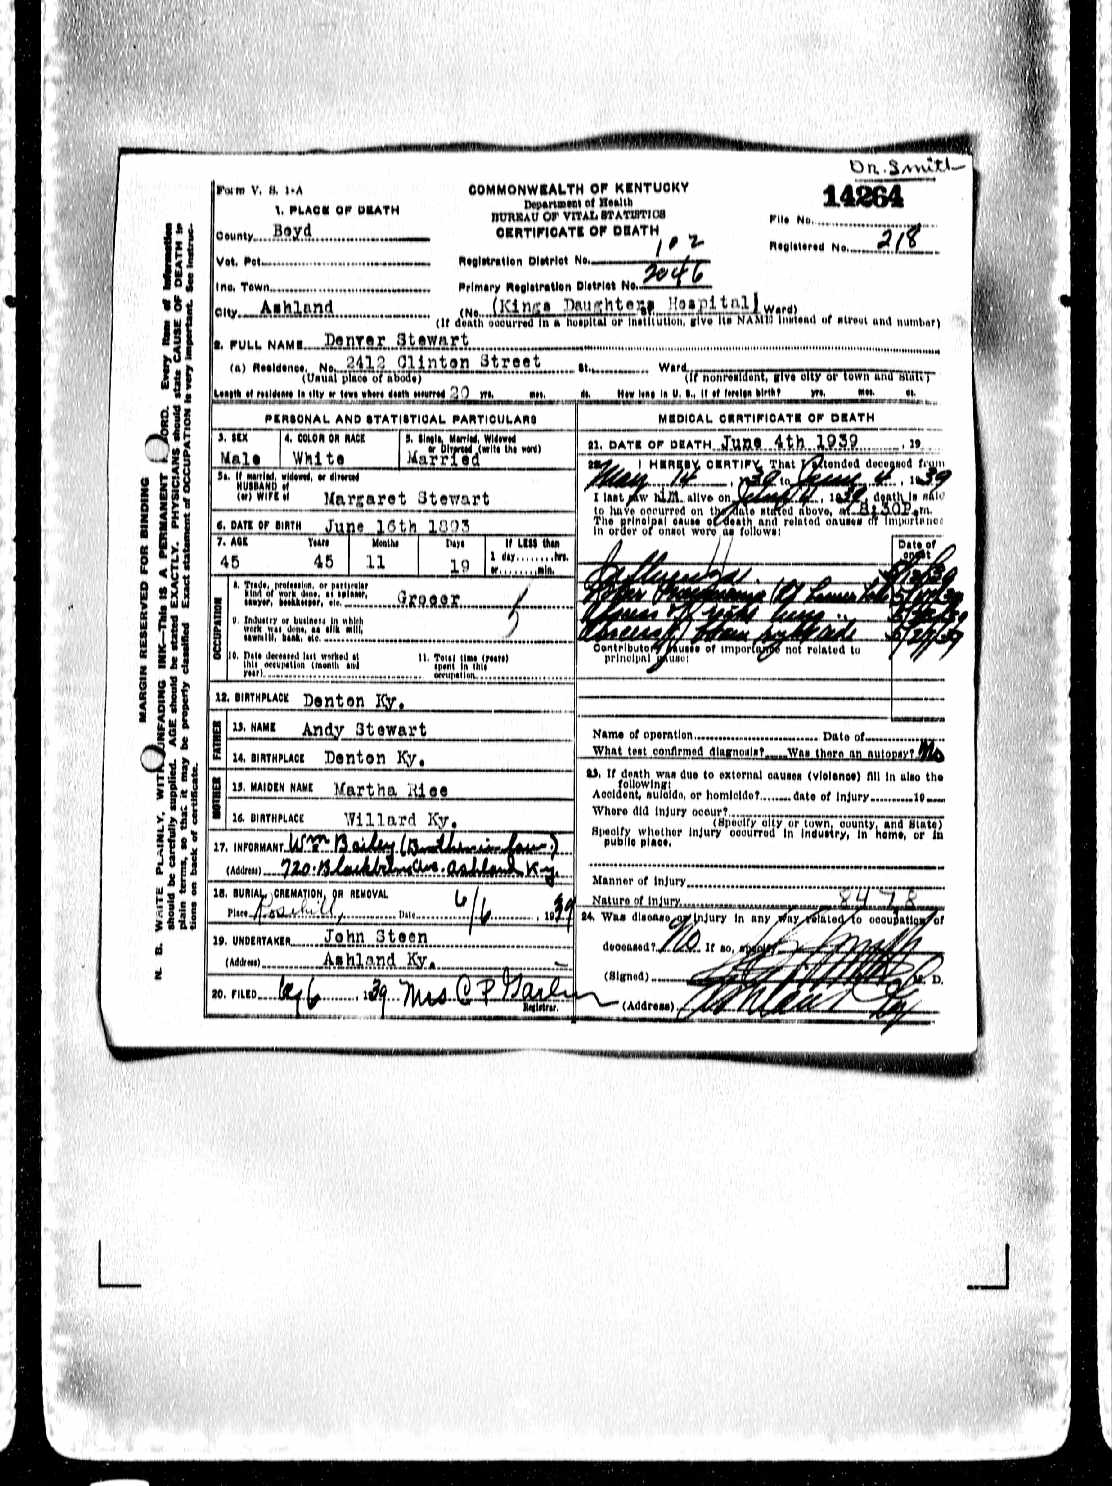 Dr. Smith
Form V. S. 1-A
COMMONWEALTH OF KENTUCKY
Department of Health
BUREAU OF VITAL STATISTICS
CERTIFICATE OF DEATH
14264
File No.
Registered No. 218
1. PLACE OF DEATH
County Boyd
Vot. Pct.
Inc. Town
City Ashland
Registration District No. 102
Primary Registration District No. 2046
(No. (Kings Daughters Hospital) Ward)
(If death occurred in a hospital or institution, give its NAME instead of street and number)
2. FULL NAME Denver Stewart
(a) Residence. No. 2412 Clinton Street St., Ward
(Usual place of abode) (If nonresident, give city or town and State)
Length of residence in city or town where death occurred 20 yrs. mos. ds. How long in U. S., if of foreign birth? yrs. mos. ds.
PERSONAL AND STATISTICAL PARTICULARS
3. SEX Male
4. COLOR OR RACE White
5. Single, Married, Widowed or Divorced (write the word) Married
5a. If married, widowed, or divorced
HUSBAND of
(or) WIFE of Margaret Stewart
6. DATE OF BIRTH June 16th 1893
7. AGE 45 Years 45 Months 11 Days 19 If LESS than 1 day hrs. or min.
OCCUPATION
8. Trade, profession, or particular kind of work done, as spinner, sawyer, bookkeeper, etc. Grocer 5
9. Industry or business in which work was done, as silk mill, sawmill, bank, etc.
10. Date deceased last worked at this occupation (month and year)
11. Total time (years) spent in this occupation
12. BIRTHPLACE Denton Ky.
FATHER
13. NAME Andy Stewart
14. BIRTHPLACE Denton Ky.
MOTHER
15. MAIDEN NAME Martha Rice
16. BIRTHPLACE Willard Ky.
17. INFORMANT Wm Bailey (Brother in law)
(Address) 720 Blackburn Ave. Ashland Ky.
18. BURIAL, CREMATION, OR REMOVAL
Place Rosehill, Date 6/6, 1939
19. UNDERTAKER John Steen
(Address) Ashland Ky.
20. FILED 6/6, 1939 Mrs C P
Registrar.
MEDICAL CERTIFICATE OF DEATH
21. DATE OF DEATH June 4th 1939, 19
22. I HEREBY CERTIFY, That I attended deceased from
May 14, 1939 to June 4, 1939
I last saw him alive on June 4, 1939, death is said
to have occurred on the date stated above, at 8:30P.m.
The principal cause of death and related causes of importance
in order of onset were as follows:
Date of onset
Influenza
Lobar Pneumonia Rt Lower Lobe
Abscess of right lung
Abscess of right side
Contributory causes of importance not related to
principal cause:
Name of operation Date of
What test confirmed diagnosis? Was there an autopsy? No
23. If death was due to external causes (violence) fill in also the
following:
Accident, suicide, or homicide? date of injury 19
Where did injury occur?
(Specify city or town, county, and State)
Specify whether injury occurred in industry, in home, or in
public place.
Manner of injury
Nature of injury 8478
24. Was disease or injury in any way related to occupation of
deceased? No If so, specify
(Signed) M. D.
(Address) Ashland Ky
MARGIN RESERVED FOR BINDING
N. B. WRITE PLAINLY, WITH UNFADING INK—This IS A PERMANENT RECORD. Every item of information
should be carefully supplied. AGE should be stated EXACTLY. PHYSICIANS should state CAUSE OF DEATH in
plain terms, so that it may be properly classified. Exact statement of OCCUPATION is very important. See instruc-
tions on back of certificate.